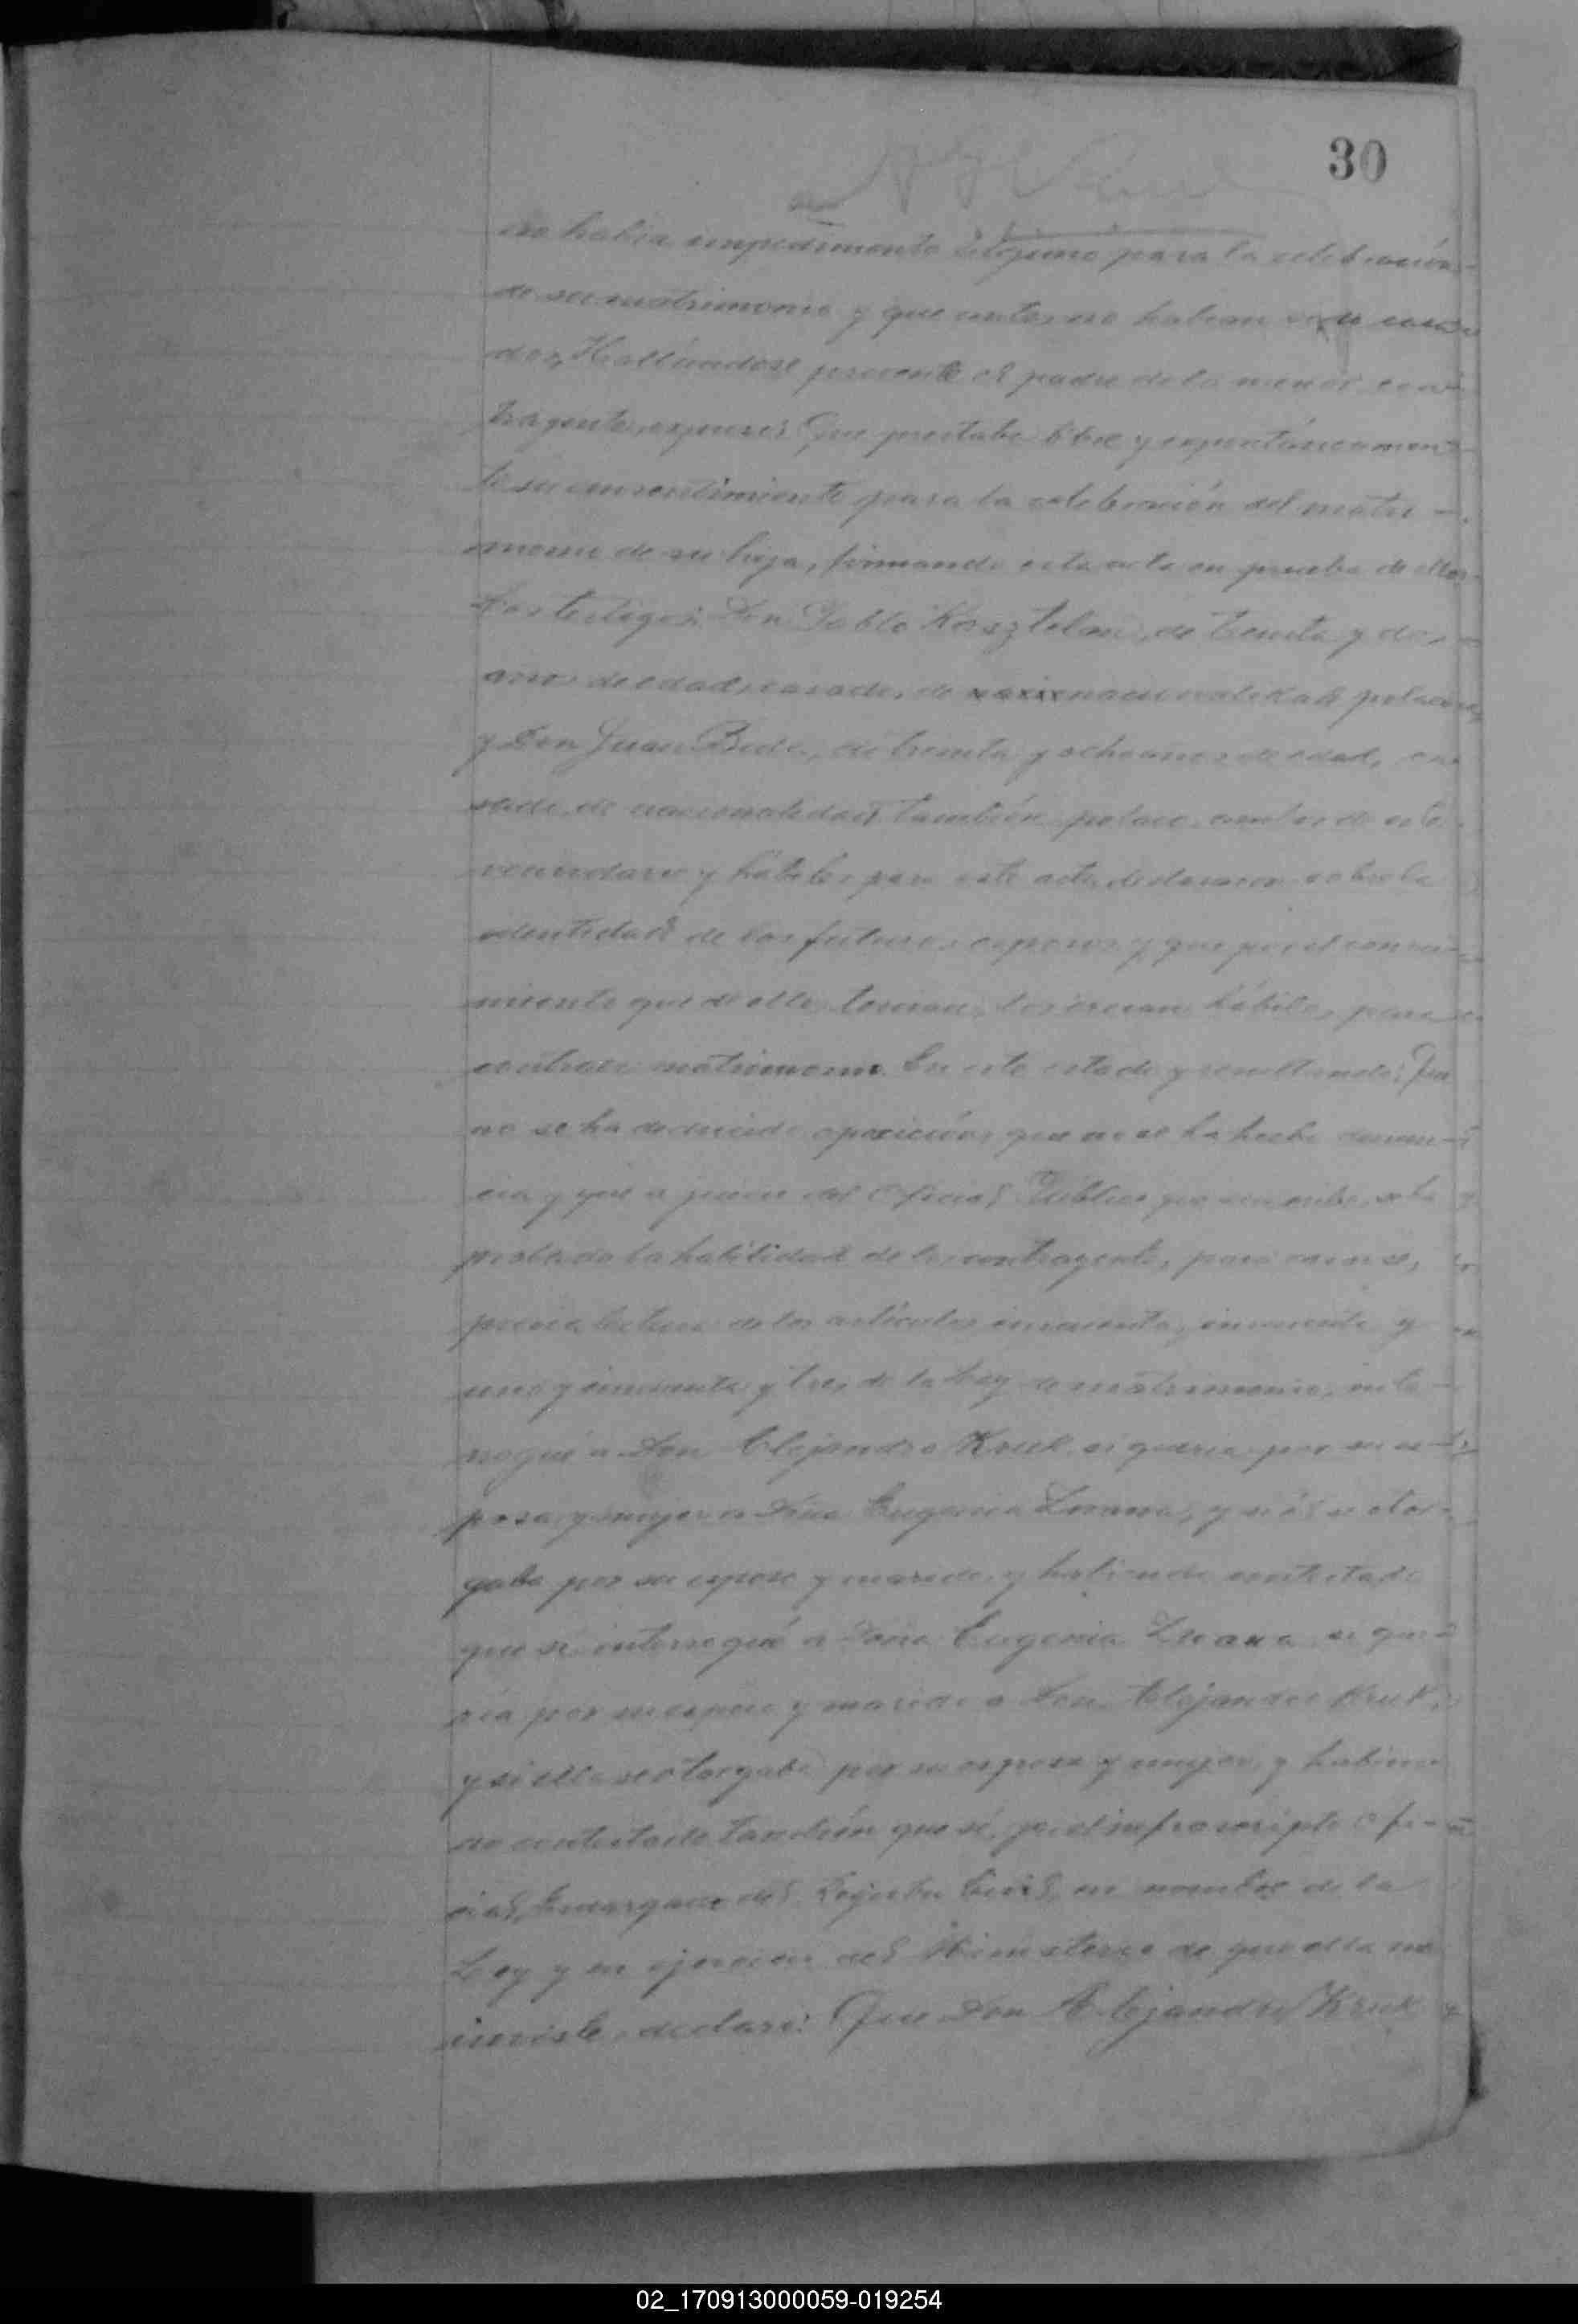 30
no habia impedimento alguno para la celebración
de su matrimonio y que antes no habian
dos, Hallándose presente el padre de la menor con
trayente, expuso: Que prestaba libre y expontáneamen
te su consentimiento para la celebración del matri-
monio de su hija, firmando esta acta en prueba de ello.
Los testigos: Don Pablo de treinta y dos
años de edad, casado, de nacionalidad polaca,
y Don Juan de treinta y ocho años de edad, ca
sado, de nacionalidad también polaco, ambos de este
vecindario y hábiles para este acto, declararon sobre la
identidad de los futuros esposos y que por el conoci-
miento que de ellos tenian, los creian hábiles para
contraer matrimonio. En este estado y resultando: Que
no se ha deducido oposición, que no se ha hecho denun-
cia y que a juicio del Oficial Público que suscribe, se ha
probado la habilidad de los contrayentes, para casarse,
previa lectura de los artículos cincuenta, cincuenta y
uno y cincuenta y tres de la Ley de matrimonio, inte-
rrogué a Don Alejandro Kruk, si queria por su es-
posa y mujer a Doña Eugenia y si él se otor-
gaba por su esposo y marido, y habiendo contestado
que si, interrogué a Doña Eugenia si que-
ria por su esposo y marido a Don Alejandro Kruk,
y si ella se otorgaba por su esposa y mujer, y habien-
do contestado también que sí, yo el infrascripto Ofi-
cial, Encargado del Registro Civil, en nombre de la
Ley y en ejercicio del Ministerio de que ella me
inviste, declaro: Que Don Alejandro Kruk
02_170913000059-019254